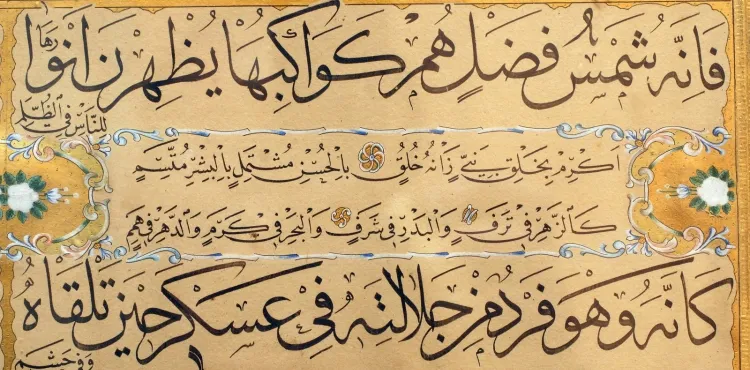 فَإِنَّهُ شَمْسُ فَضْلٍ هُمْ كَوَاكِبُهَا يُظْهِرْنَ أَنْوَارَهَا
لِلنَّاسِ فِي الظُّلَمِ
اَكْرِمْ بِخَلْقِ نَبِيٍّ زَانَهُ خُلُقٌ بِالْحُسْنِ مُشْتَمِلٍ بِالْبِشْرِ مُتَّسِمِ
كَالزَّهْرِ فِي تَرَفٍ وَالْبَدْرِ فِي شَرَفٍ وَالْبَحْرِ فِي كَرَمٍ وَالدَّهْرِ فِي هِمَمِ
كَأَنَّهُ وَهُوَ فَرْدٌ مِنْ جَلَالَتِهِ فِي عَسْكَرٍ حِينَ تَلْقَاهُ
وَفِي حَشَمِ